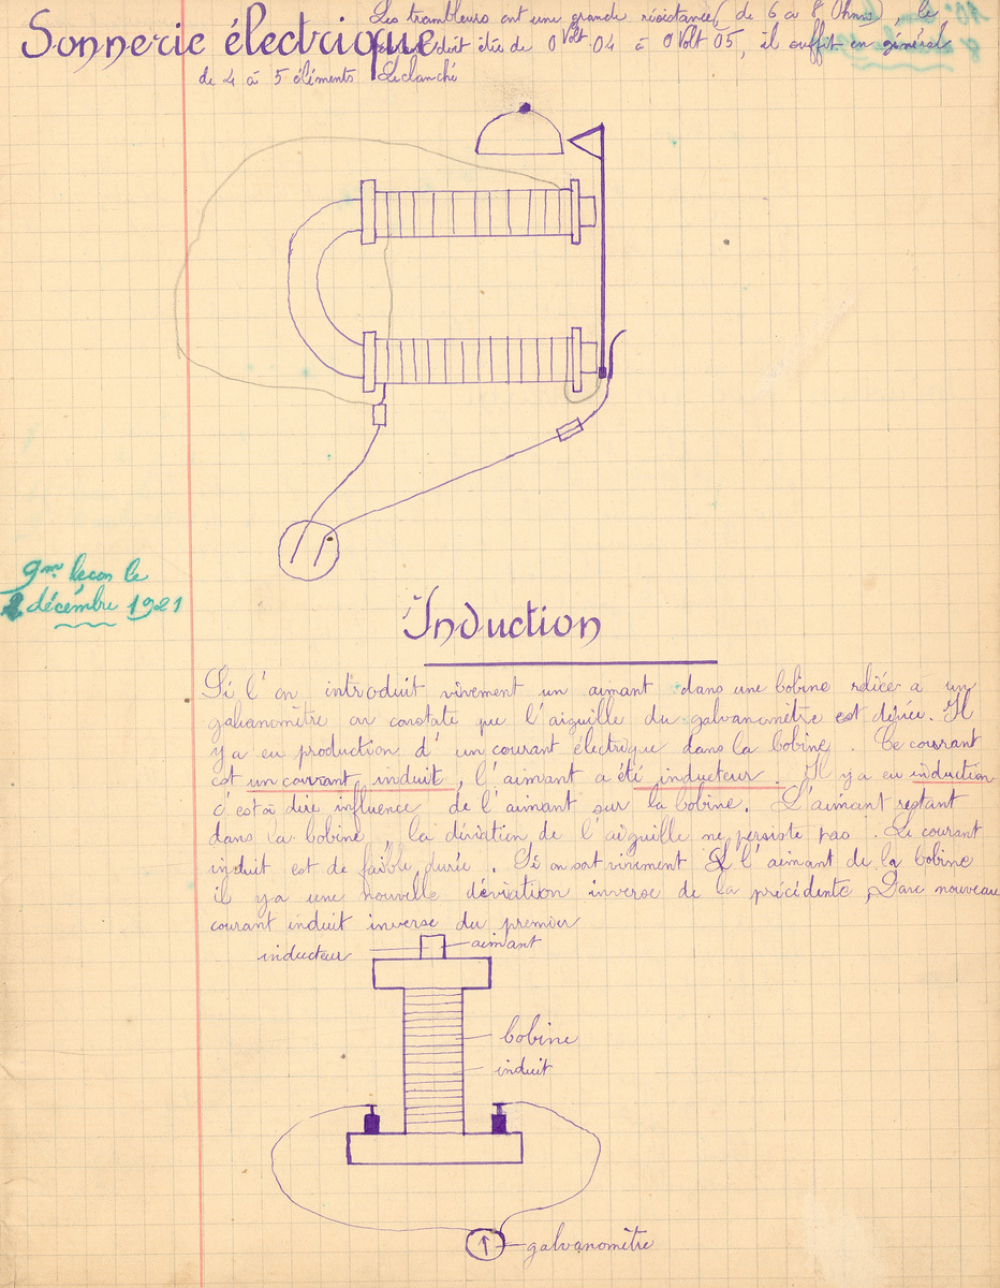 Sonnerie électrique
Les trembleurs ont une grande résistance ( de 6 a 8 Ohms ), le
doit être de 0 Volt 04 à 0 Volt 05, il suffit en général
de 4 à 5 éléments Leclanché
9me leçon le
2 décembre 1921
Induction
Si l'on introduit vivement un aimant dans une bobine reliée a un
galvanomètre on constate que l'aiguille du galvanomètre est déviée. Il
y a eu production d'un courant électrique dans la bobine. Ce courant
est un courant induit, l'aimant a été inducteur. Il y a eu induction
c'est a dire influence de l'aimant sur la bobine. L'aimant restant
dans la bobine, la déviation de l'aiguille ne persiste pas. Le courant
induit est de faible durée. Si on sort vivement l'aimant de la bobine
il y a une nouvelle déviation inverse de la précédente, Donc nouveau
courant induit inverse du premier
inducteur aimant
bobine
induit
galvanomètre